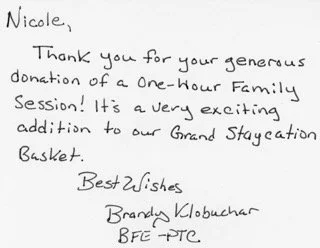 Nicole,
Thank you for your generous
donation of a One-Hour Family
Session! It's a very exciting
addition to our Grand Staycation
Basket.
Best Wishes
Brandy Klobuchar
BFE-PTC